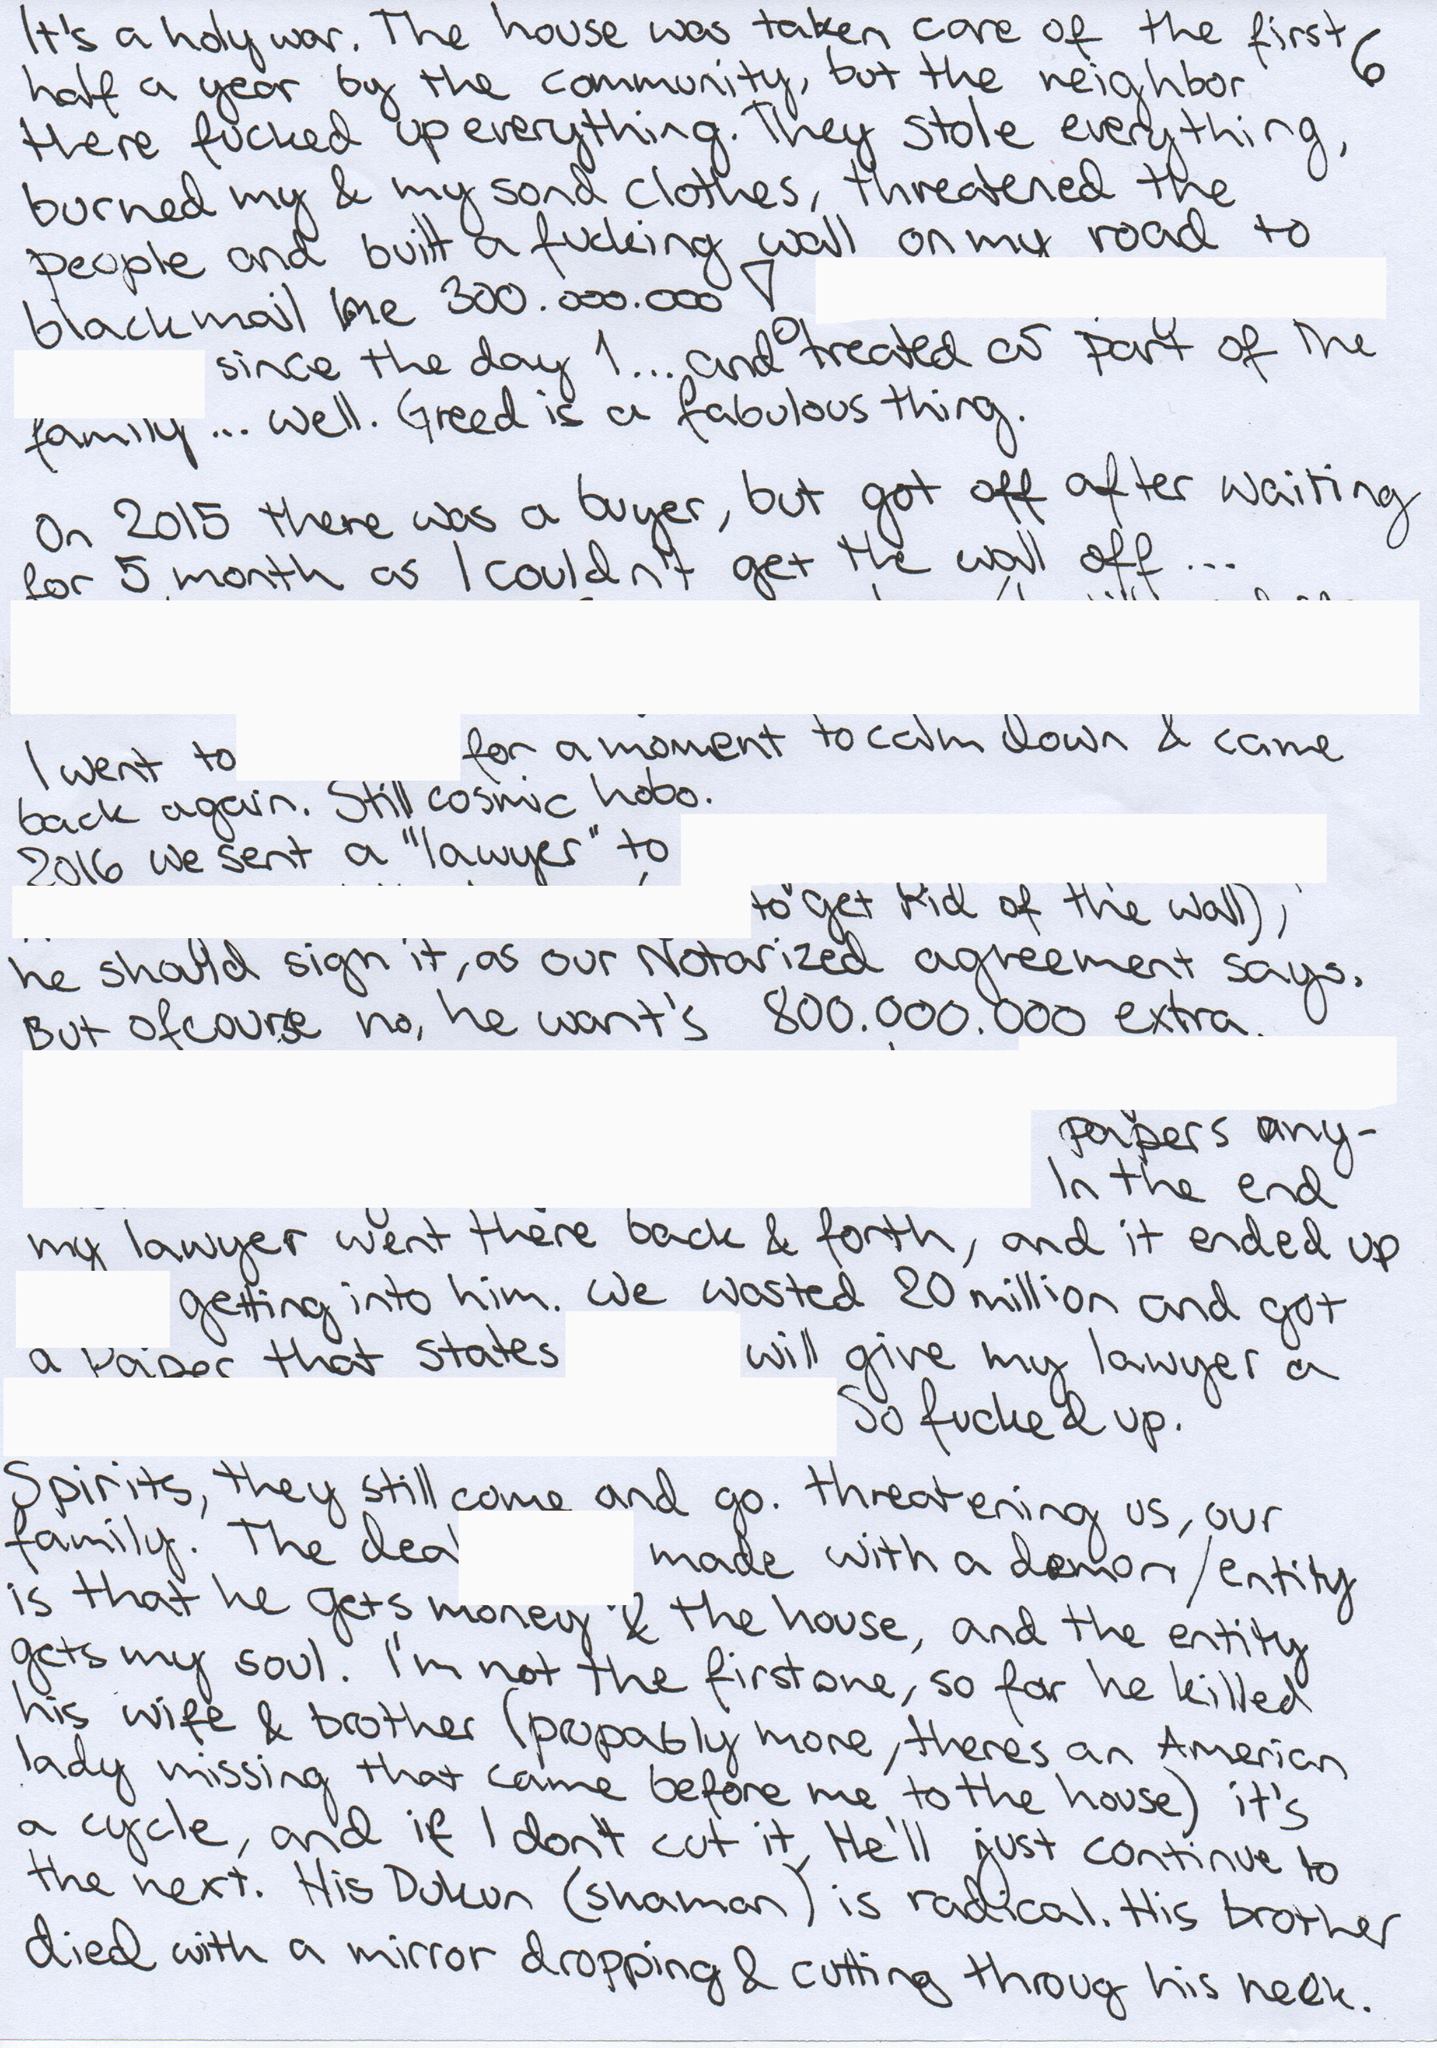 It's a holy war. The house was taken care of the first 6
half a year by the community, but the neighbor
there fucked up everything. They stole everything,
burned my & my sond clothes, threatened the
people and built a fucking wall on my road to
blackmail me 300.000.000
since the day 1... and treated as part of the
family... well. Greed is a fabulous thing.
On 2015 there was a buyer, but got off after waiting
for 5 month as I couldn't get the wall off...
I went to for a moment to calm down & came
back again. Still cosmic hobo.
2016 we sent a "lawyer" to
to get rid of the wall),
he should sign it, as our Notarized agreement says.
But ofcourse no, he want's 800.000.000 extra.
papers any-
In the end
my lawyer went there back & forth, and it ended up
getting into him. We wasted 20 million and got
a paper that states will give my lawyer a
So fucked up.
Spirits, they still come and go. threatening us, our
family. The deal made with a demon/entity
is that he gets money & the house, and the entity
gets my soul. I'm not the first one, so far he killed
his wife & brother (propably more, theres an American
lady missing that came before me to the house) it's
a cycle, and if I don't cut it, He'll just continue to
the next. His Dukun (shaman) is radical. His brother
died with a mirror dropping & cutting throug his neck.